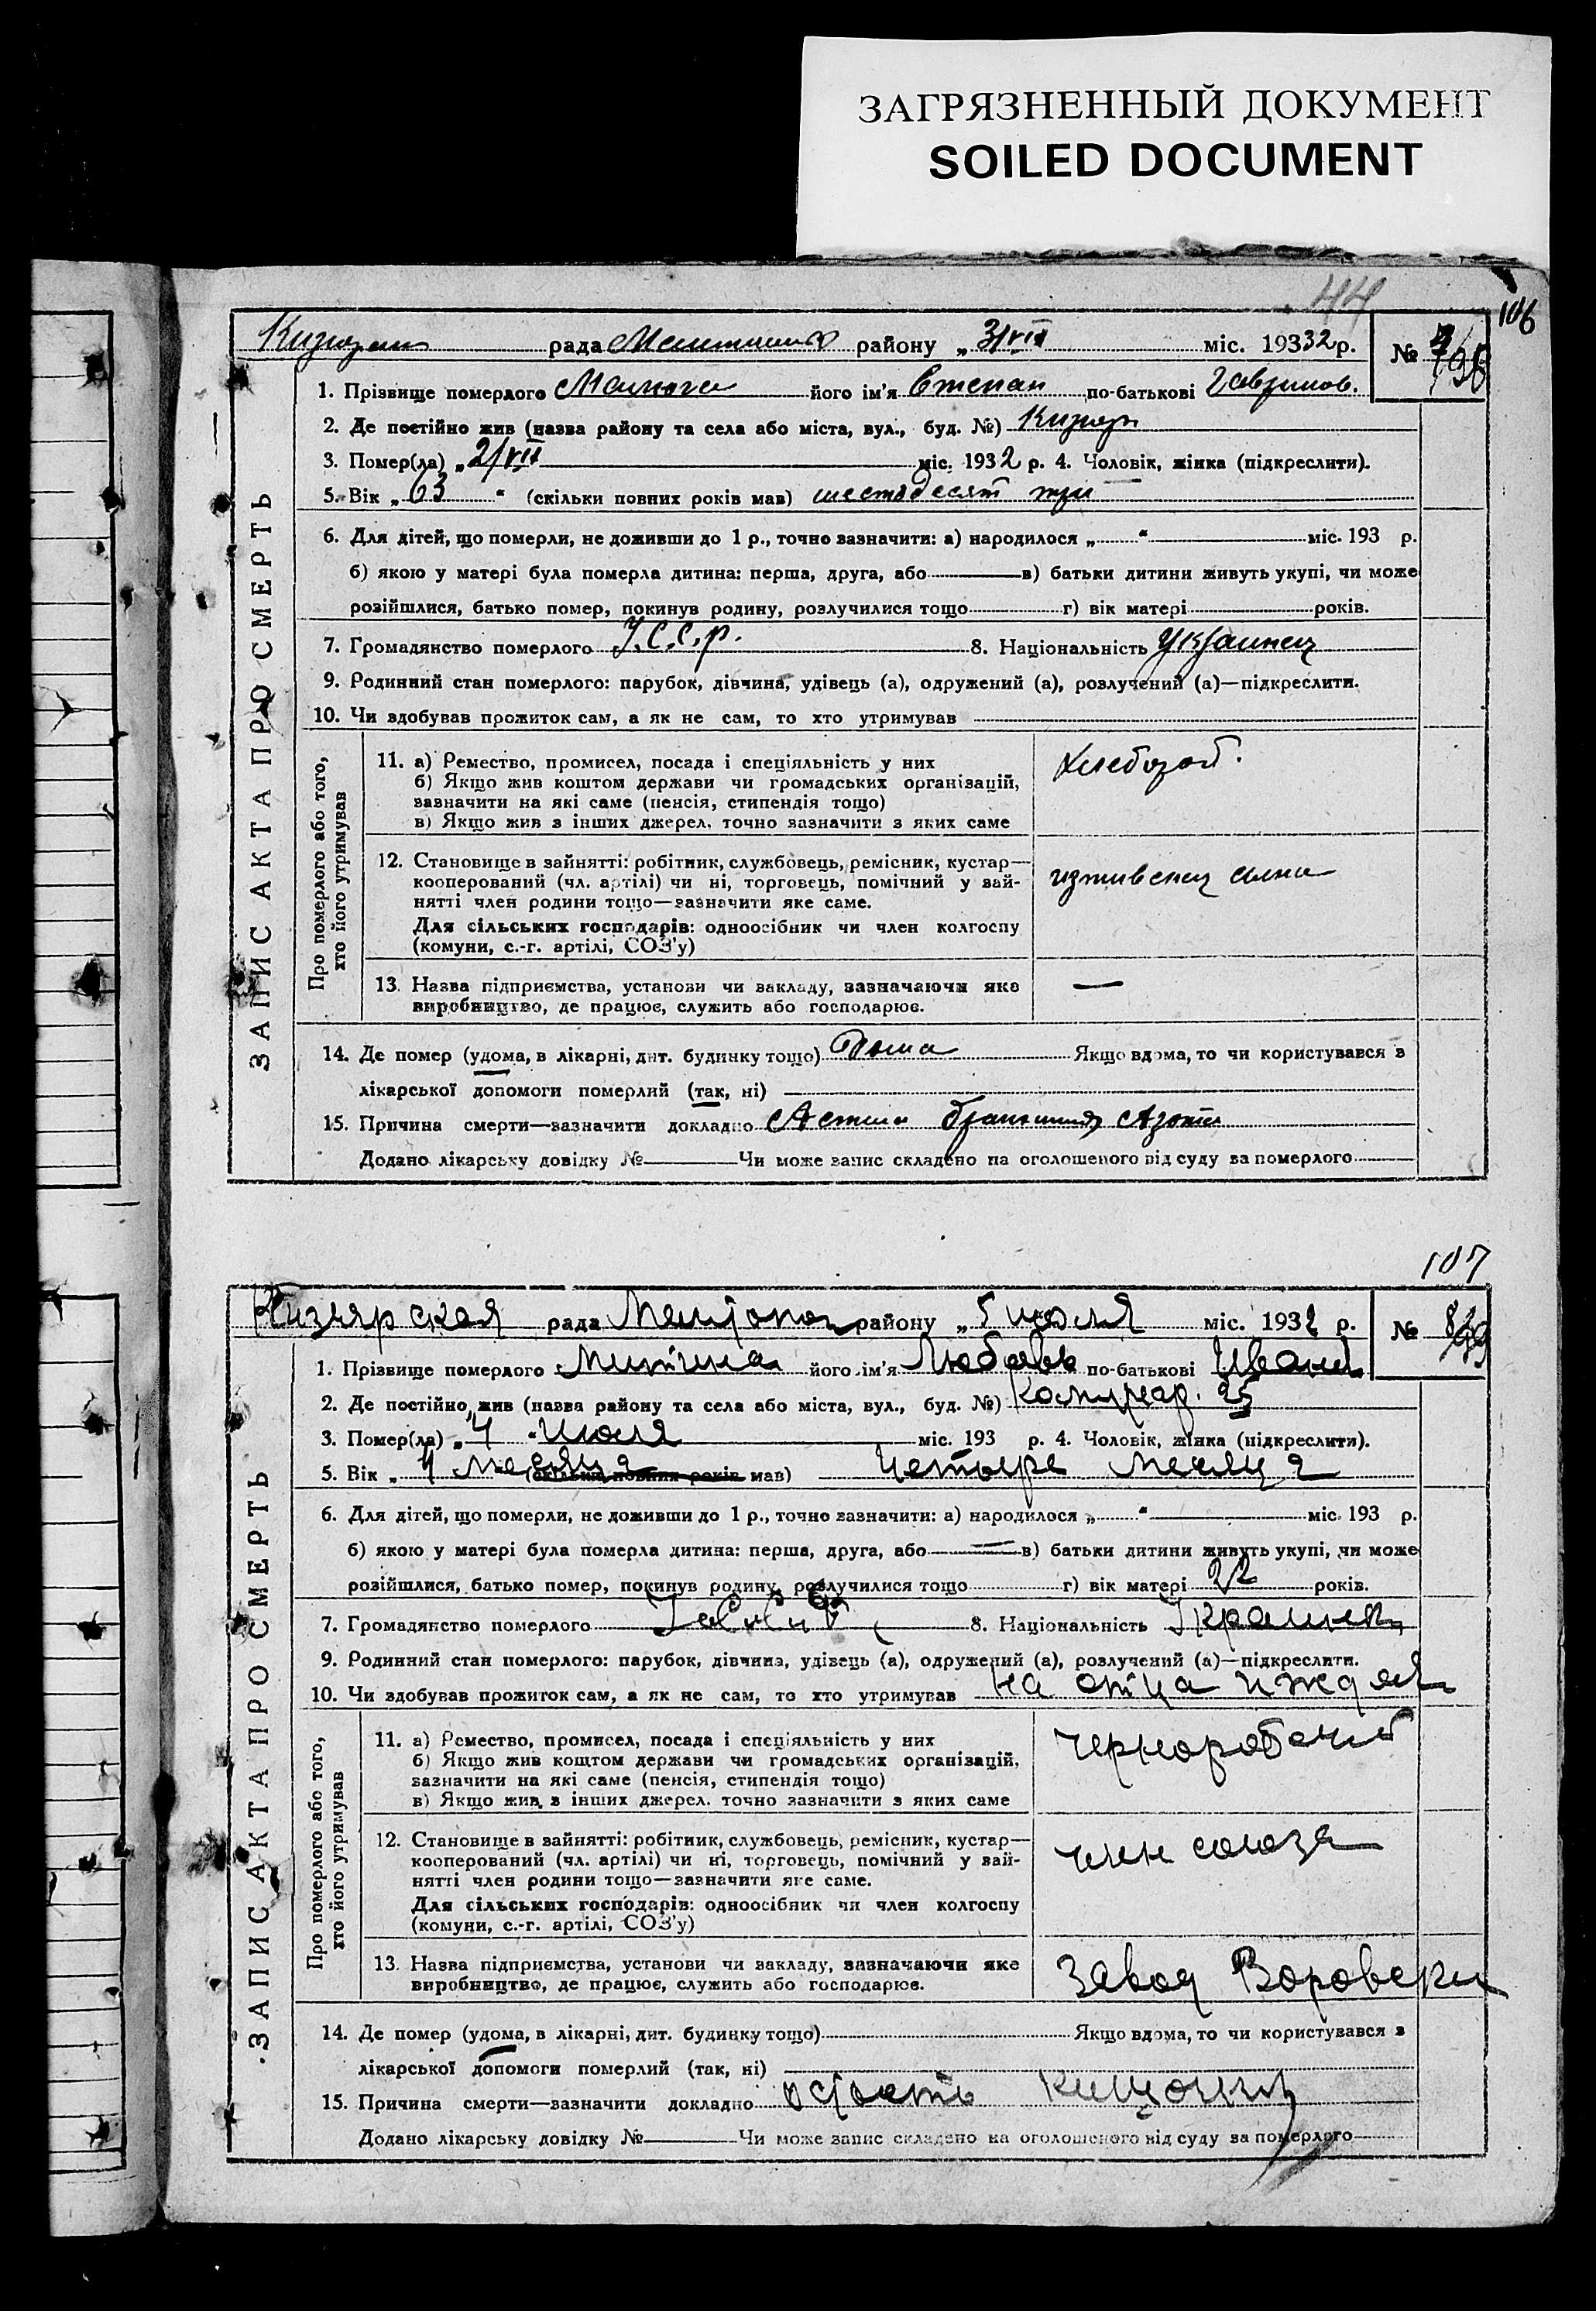 ЗАГРЯЗНЕННЫЙ ДОКУМЕНТ
SOILED DOCUMENT
44
106
рада района району „ 3/VII міс. 1932 р. №
1. Прізвище померлого його ім'я Степан по-батькові
2. Де постійно жив (назва району та села або міста, вул., буд. №) Кизияр
3. Помер(ла) „ 2/VII міс. 1932 р. 4. Чоловік, жінка (підкреслити).
5. Вік „ 63 " (скільки повних років мав) шестьдесят три
6. Для дітей, що померли, не доживши до 1 р., точно зазначити: а) народилося „ " міс. 193 р.
б) якою у матері була померла дитина: перша, друга, або в) батьки дитини живуть укупі, чи може
розійшлися, батько помер, покинув родину, розлучилися тощо г) вік матері років.
7. Громадянство померлого У.С.С.р. 8. Національність Украинец
9. Родинний стан померлого: парубок, дівчина, удівець (а), одружений (а), розлучений (а)—підкреслити.
10. Чи здобував прожиток сам, а як не сам, то хто утримував
ЗАПИС АКТА ПРО СМЕРТЬ
Про померлого або того,
хто його утримував
11. а) Ремество, промисел, посада і спеціяльність у них
б) Якщо жив коштом держави чи громадських організацій,
зазначити на які саме (пенсія, стипендія тощо)
в) Якщо жив з інших джерел, точно зазначити з яких саме
Хлебороб.
12. Становище в зайнятті: робітник, службовець, ремісник, кустар—
кооперований (чл. артілі) чи ні, торговець, помічний у зай-
нятті член родини тощо—зазначити яке саме.
Для сільських господарів: одноосібник чи член колгоспу
(комуни, с.-г. артілі, СОЗ'у)
иждивенец сына
13. Назва підприємства, установи чи закладу, зазначаючи яке
виробництво, де працює, служить або господарює.
—
14. Де помер (удома, в лікарні, дит. будинку тощо) Дома Якщо вдома, то чи користувався з
лікарської допомоги померлий (так, ні)
15. Причина смерти—зазначити докладно
Додано лікарську довідку № Чи може запис складено на оголошеного від суду за померлого
107
Кизиярская рада Мелитопол району „ 5 июля міс. 1932 р. №
1. Прізвище померлого Митина його ім'я Любовь по-батькові Иван.
2. Де постійно жив (назва району та села або міста, вул., буд. №) 25
3. Помер(ла) „ 4 " Июля міс. 193 р. 4. Чоловік, жінка (підкреслити).
5. Вік „ 4 месяца (скільки повних років мав) Четыре месяца
6. Для дітей, що померли, не доживши до 1 р., точно зазначити: а) народилося „ " міс. 193 р.
б) якою у матері була померла дитина: перша, друга, або в) батьки дитини живуть укупі, чи може
розійшлися, батько помер, покинув родину, розлучилися тощо г) вік матері 22 років.
7. Громадянство померлого 8. Національність
9. Родинний стан померлого: парубок, дівчина, удівець (а), одружений (а), розлучений (а)—підкреслити.
10. Чи здобував прожиток сам, а як не сам, то хто утримував на отца
ЗАПИС АКТА ПРО СМЕРТЬ
Про померлого або того,
хто його утримував
11. а) Ремество, промисел, посада і спеціяльність у них
б) Якщо жив коштом держави чи громадських організацій,
зазначити на які саме (пенсія, стипендія тощо)
в) Якщо жив з інших джерел, точно зазначити з яких саме
чернорабочий
12. Становище в зайнятті: робітник, службовець, ремісник, кустар—
кооперований (чл. артілі) чи ні, торговець, помічний у зай-
нятті член родини тощо—зазначити яке саме.
Для сільських господарів: одноосібник чи член колгоспу
(комуни, с.-г. артілі, СОЗ'у)
член союза
13. Назва підприємства, установи чи закладу, зазначаючи яке
виробництво, де працює, служить або господарює.
Завод Воровски
14. Де помер (удома, в лікарні, дит. будинку тощо) Якщо вдома, то чи користувався з
лікарської допомоги померлий (так, ні)
15. Причина смерти—зазначити докладно
Додано лікарську довідку № Чи може запис складено на оголошеного від суду за померлого